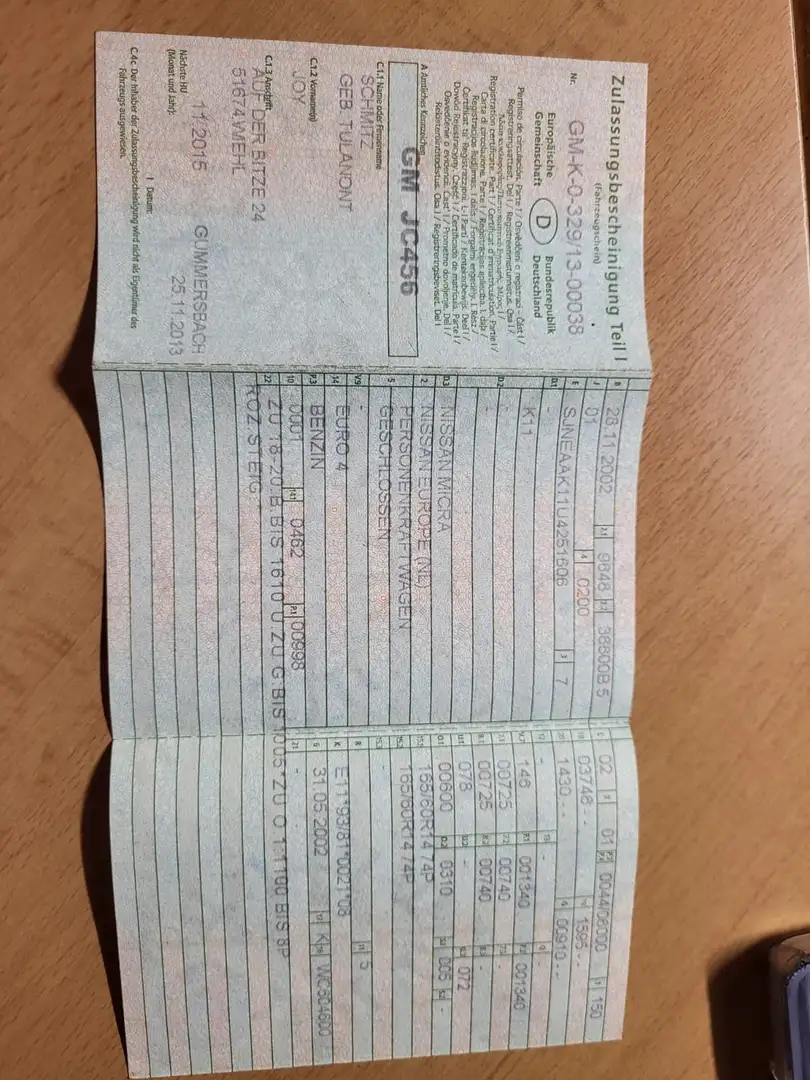 Zulassungsbescheinigung Teil I
(Fahrzeugschein)
Nr. GM-K-0-329/13-00038
Europäische Gemeinschaft
D
Bundesrepublik Deutschland
Permiso de circulación. Parte I / Osvědčení o registraci - Část I /
Registreringsattest. Del I / Registreerimistunnistus. Osa I /
Registration certificate. Part I / Certificat d'immatriculation. Partie I /
A Amtliches Kennzeichen
GM JC456
C.1.1 Name oder Firmenname
SCHMITZ
GEB. TULANONT
C.1.2 Vorname(n)
JOY
C.1.3 Anschrift
AUF DER BITZE 24
51674 WIEHL
Nächste HU
(Monat und Jahr):
11.2015
GUMMERSBACH
I Datum:
25.11.2013
C.4c Der Inhaber der Zulassungsbescheinigung wird nicht als Eigentümer des
Fahrzeugs ausgewiesen.
B 28.11.2002 2.1 9648 2.2 38800B 5
J 01 4 0200
E SJNEAAK11U4251606 3 7
D.1 -
K11
D.2 -
-
D.3 NISSAN MICRA
2 NISSAN EUROPE (NL)
5 PERSONENKRAFTWAGEN
GESCHLOSSEN
V.9 -
14 EURO 4
P.3 BENZIN
10 0001 14.1 0462 P.1 00998
22 ZU 18-20:B.BIS 1610 U.ZU G:BIS 1005*ZU O.1:1100 BIS 8P
ROZ.STEIG.
02 01 0044/06000 150
03746-- 1595--
1430-- 00910--
- - -
146 001340 001340
00725 00740 -
00725 00740 -
078 - 072
00600 0310 005 -
155/60R14 74P
165/60R14 74P
-
R - 11 5
K E11*93/81*0021*08
6 31.05.2002 17 K 16 WC804600
21 -